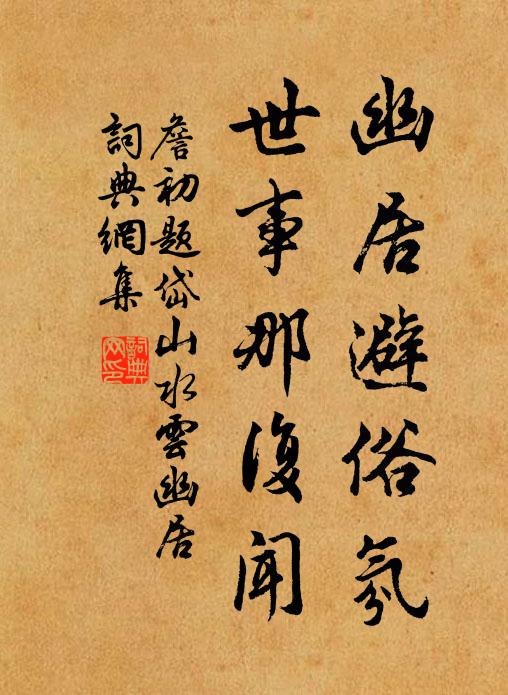 幽居避俗氛
世事那復聞
詹初題岱山水雲幽居
詞典網集
詞典網印